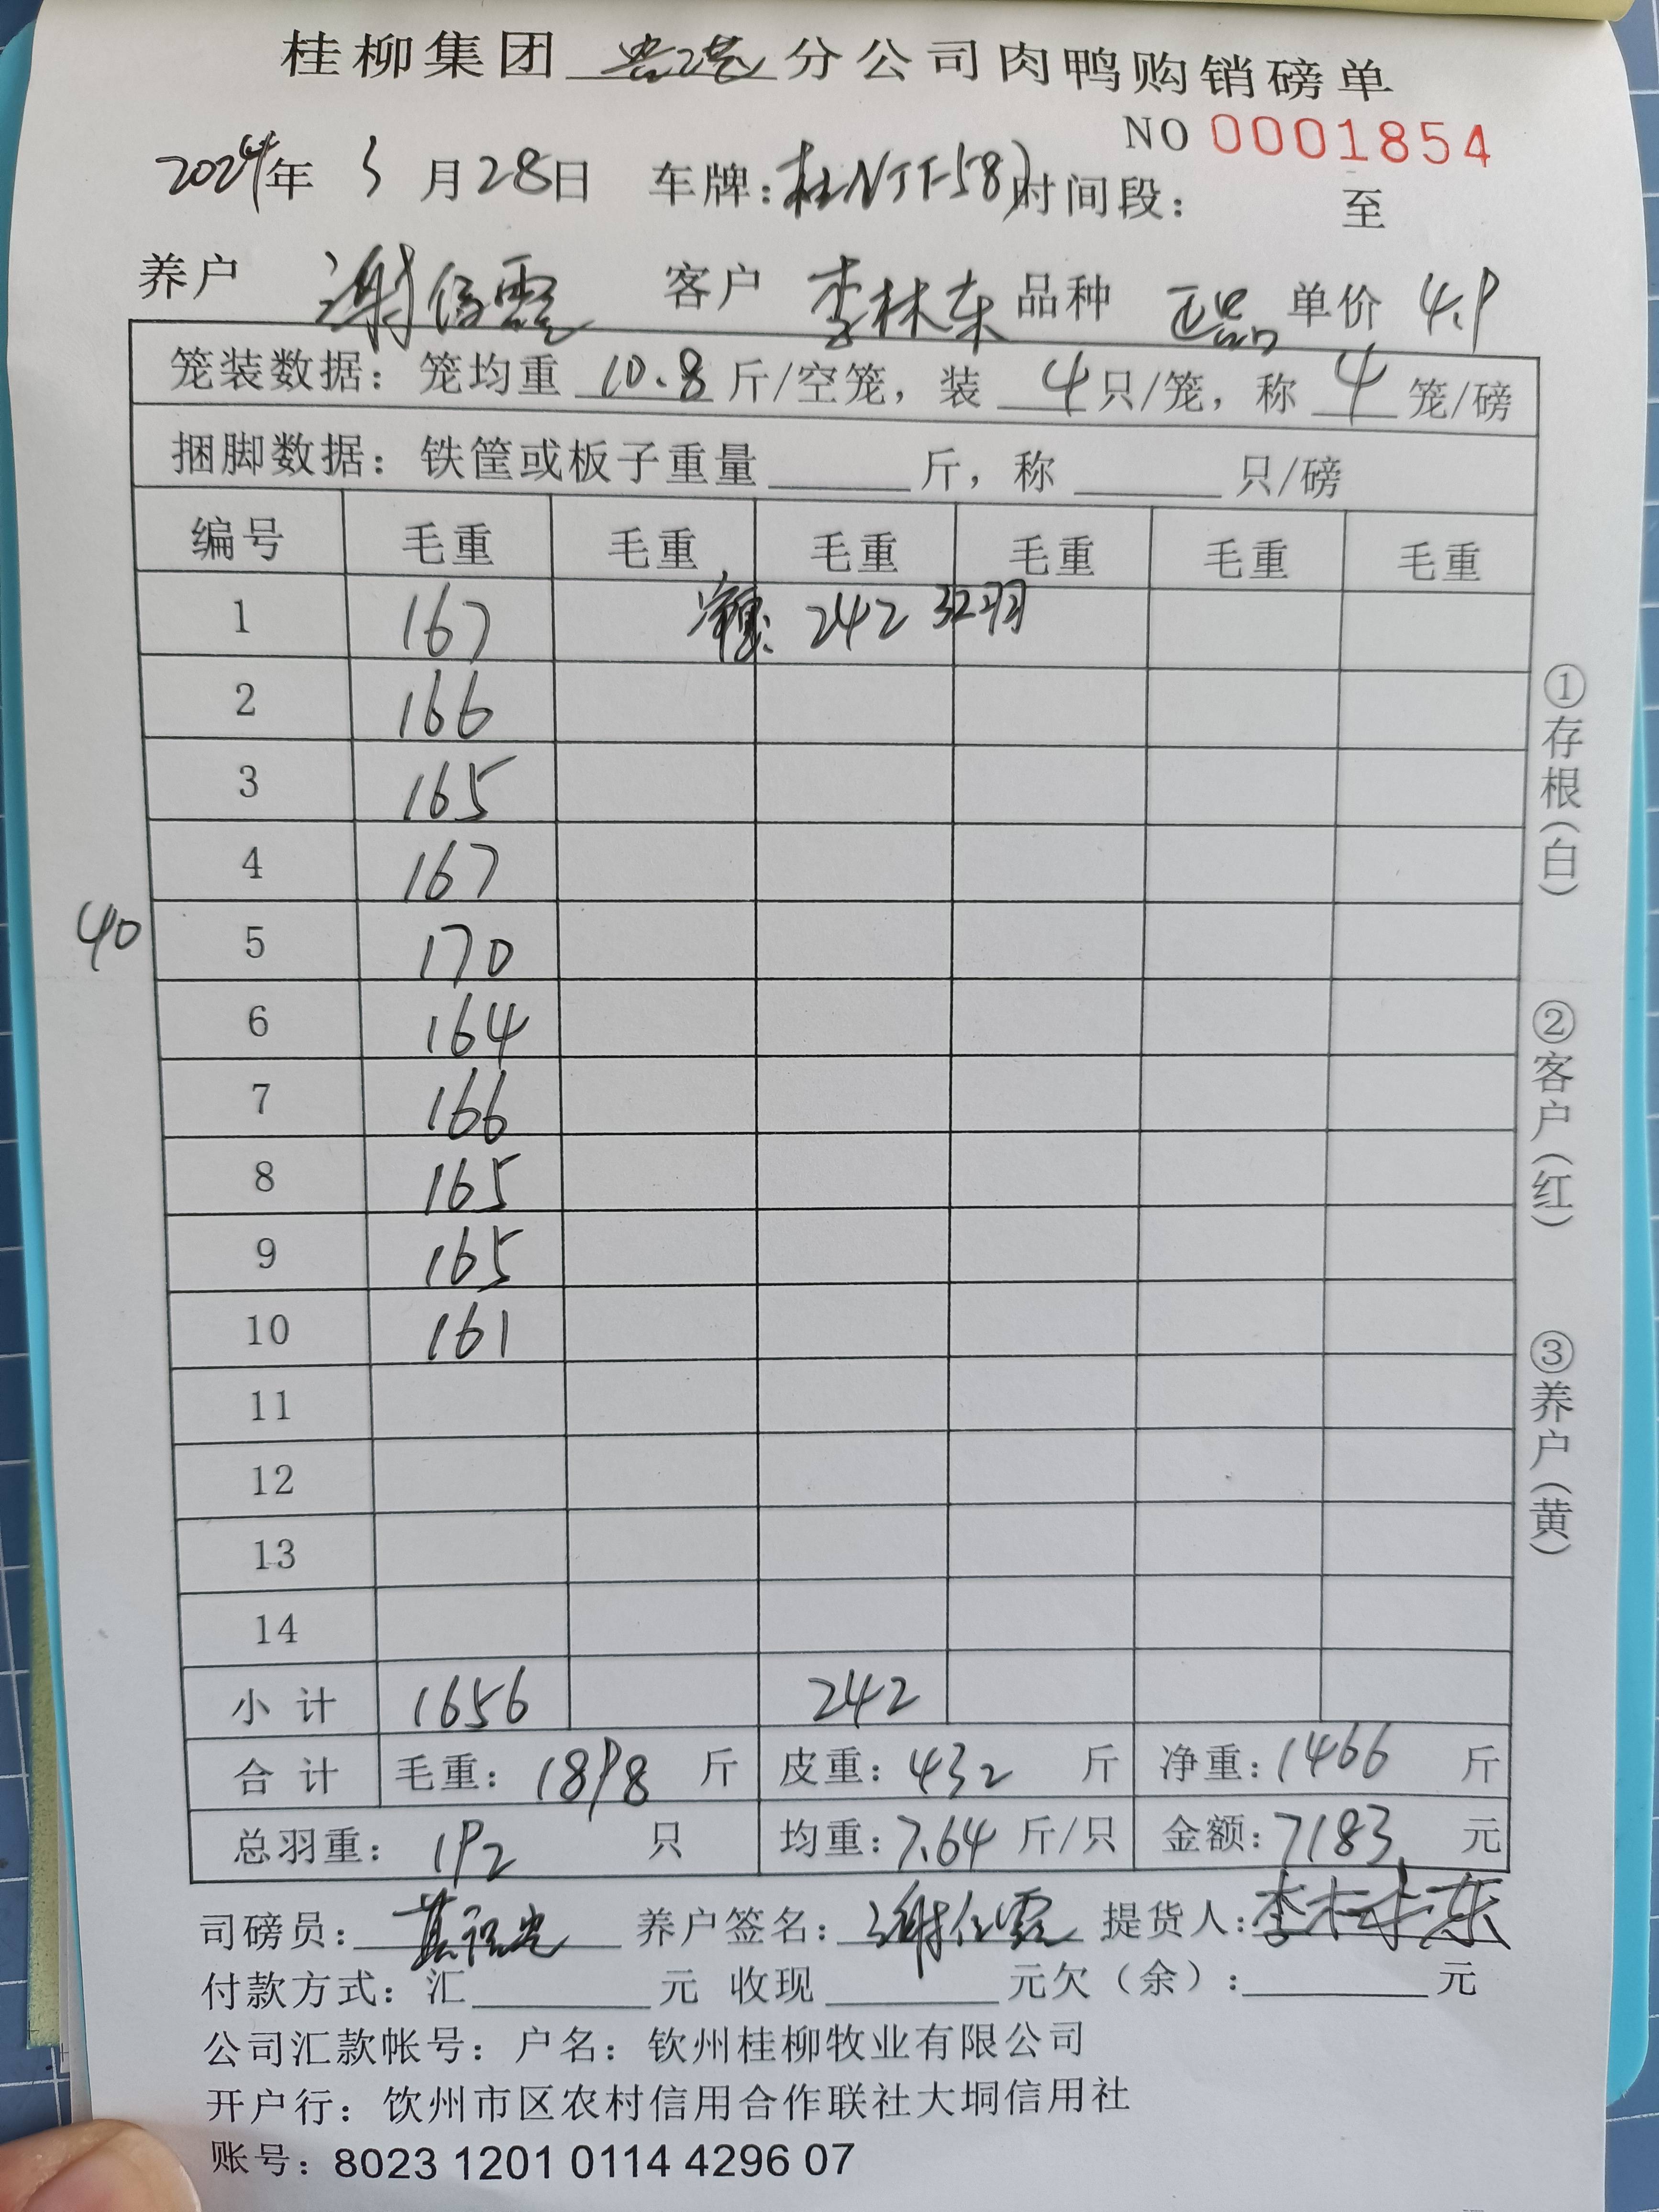 桂柳集团 贵港 分公司肉鸭购销磅单
NO 0001854
2024年 3 月 28日 车牌: 时间段: 至
养户 谢信霞 客户 李林东 品种 正品 单价 4.9
笼装数据: 笼均重 10.8 斤/空笼, 装 4 只/笼, 称 4 笼/磅
捆脚数据: 铁筐或板子重量 斤, 称 只/磅
编号 毛重 毛重 毛重 毛重 毛重 毛重
1 167 242 32羽
2 166
3 165
4 167
40
5 170
6 164
7 166
8 165
9 165
10 161
11
12
13
14
小 计 1656 242
合 计 毛重: 1898 斤 皮重: 432 斤 净重: 1466 斤
总羽重: 192 只 均重: 7.64 斤/只 金额: 7183 元
司磅员: 养户签名: 谢信霞 提货人: 李林东
付款方式: 汇 元 收现 元欠(余): 元
公司汇款帐号: 户名: 钦州桂柳牧业有限公司
开户行: 饮州市区农村信用合作联社大垌信用社
账号: 8023 1201 0114 4296 07
①存根(白)
②客户(红)
③养户(黄)